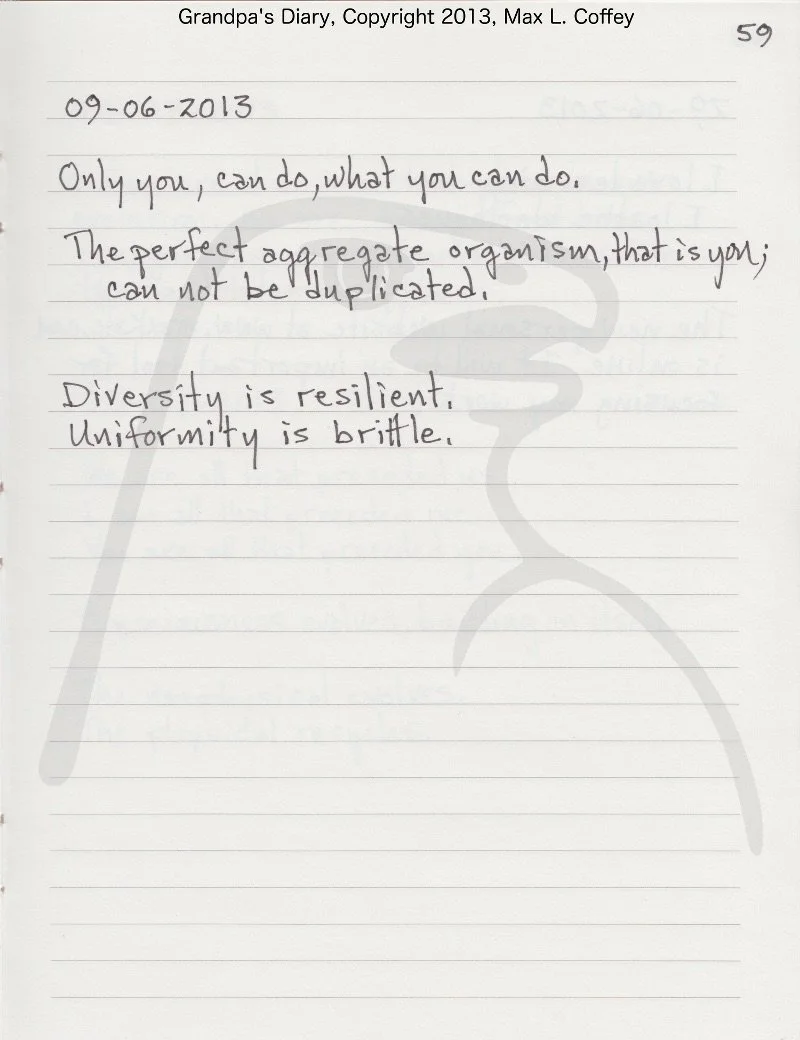 Grandpa's Diary, Copyright 2013, Max L. Coffey
59
09-06-2013
Only you, can do, what you can do.
The perfect aggregate organism, that is you;
can not be duplicated.
Diversity is resilient.
Uniformity is brittle.